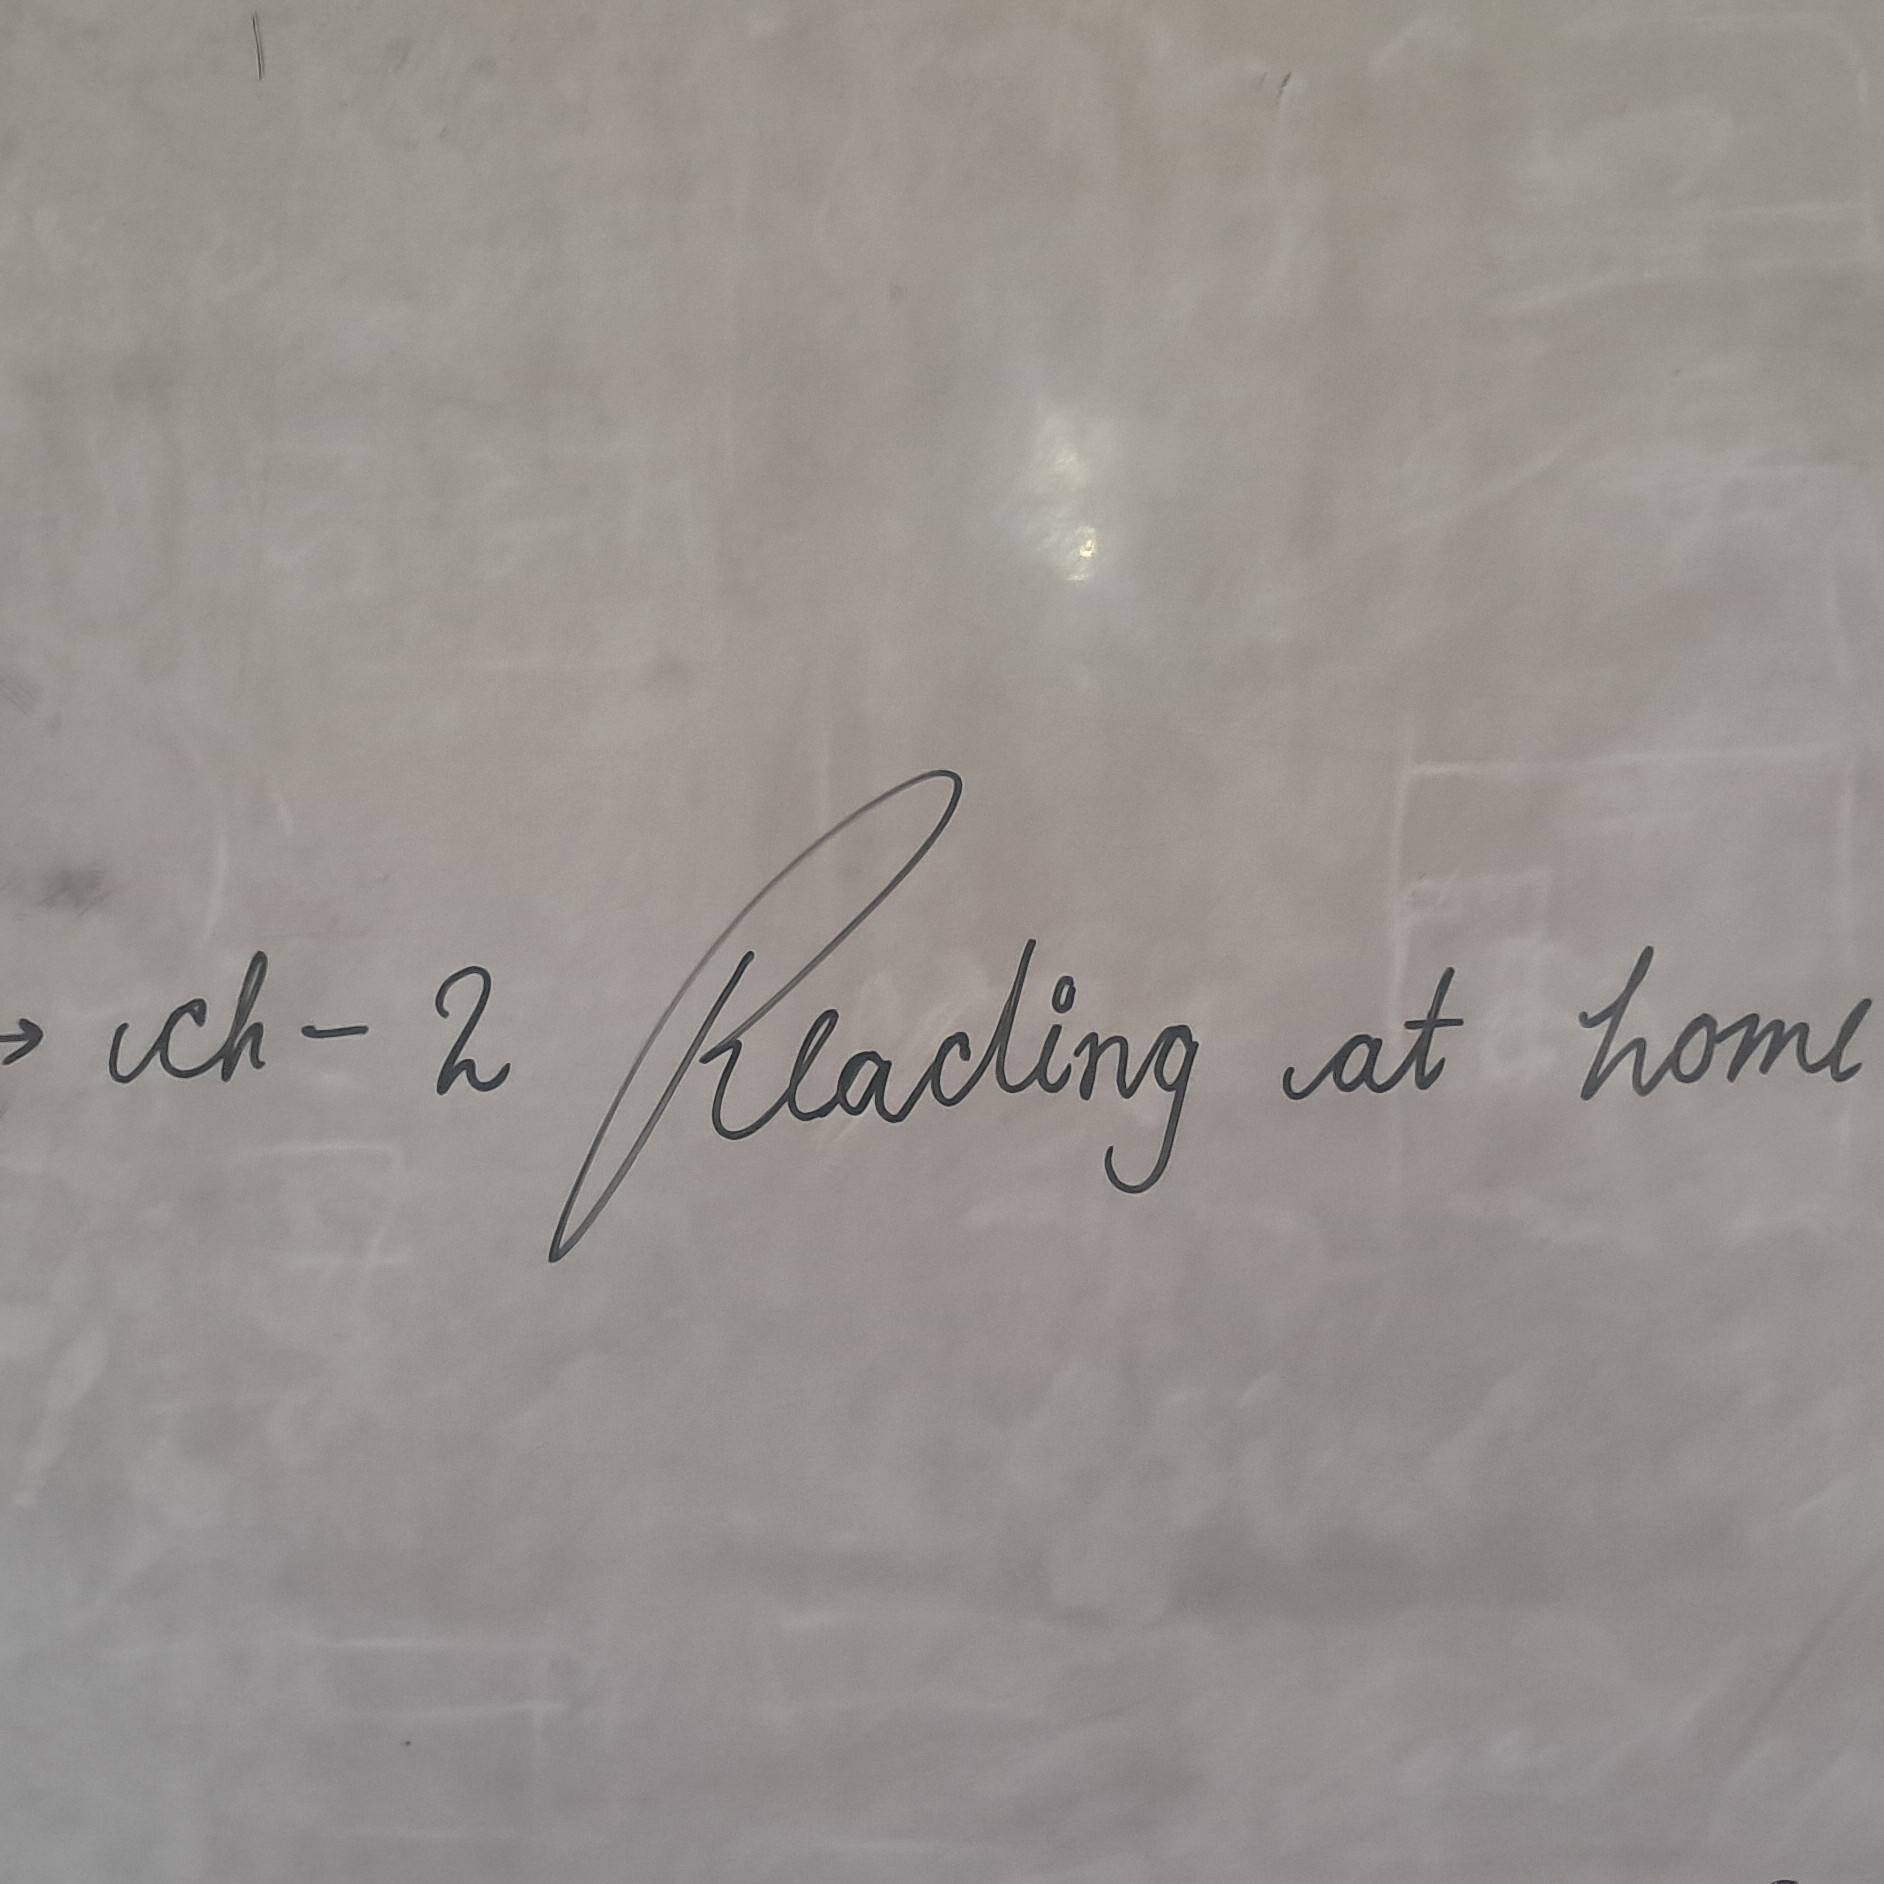 → ch - 2 Reading at home